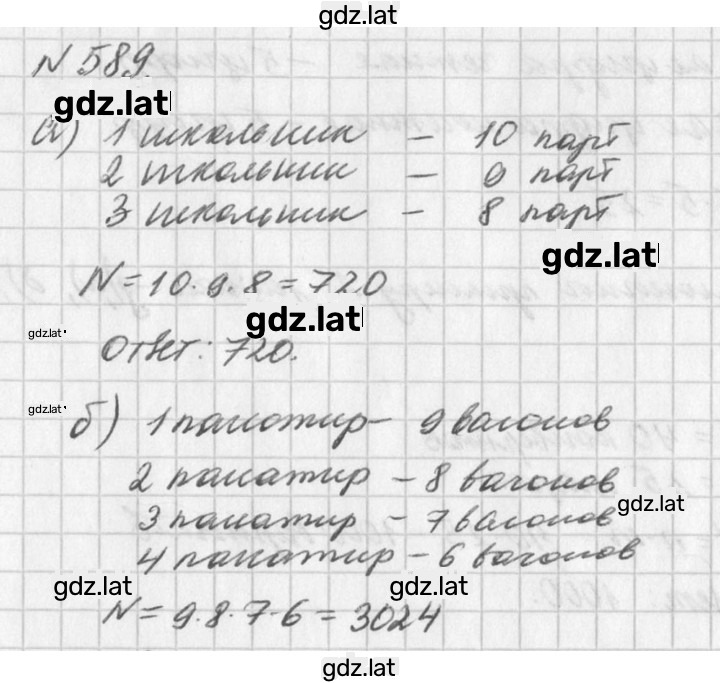 gdz.lat
N 589.
gdz.lat
а) 1 школьник – 10 парт
2 школьник – 9 парт
3 школьник – 8 парт
gdz.lat
N = 10·9·8 = 720
gdz.lat
gdz.lat
Ответ: 720.
gdz.lat
б) 1 пассажир – 9 вагонов
2 пассажир – 8 вагонов
gdz.lat
3 пассажир – 7 вагонов
4 пассажир – 6 вагонов
gdz.lat gdz.lat
N = 9·8·7·6 = 3024
gdz.lat